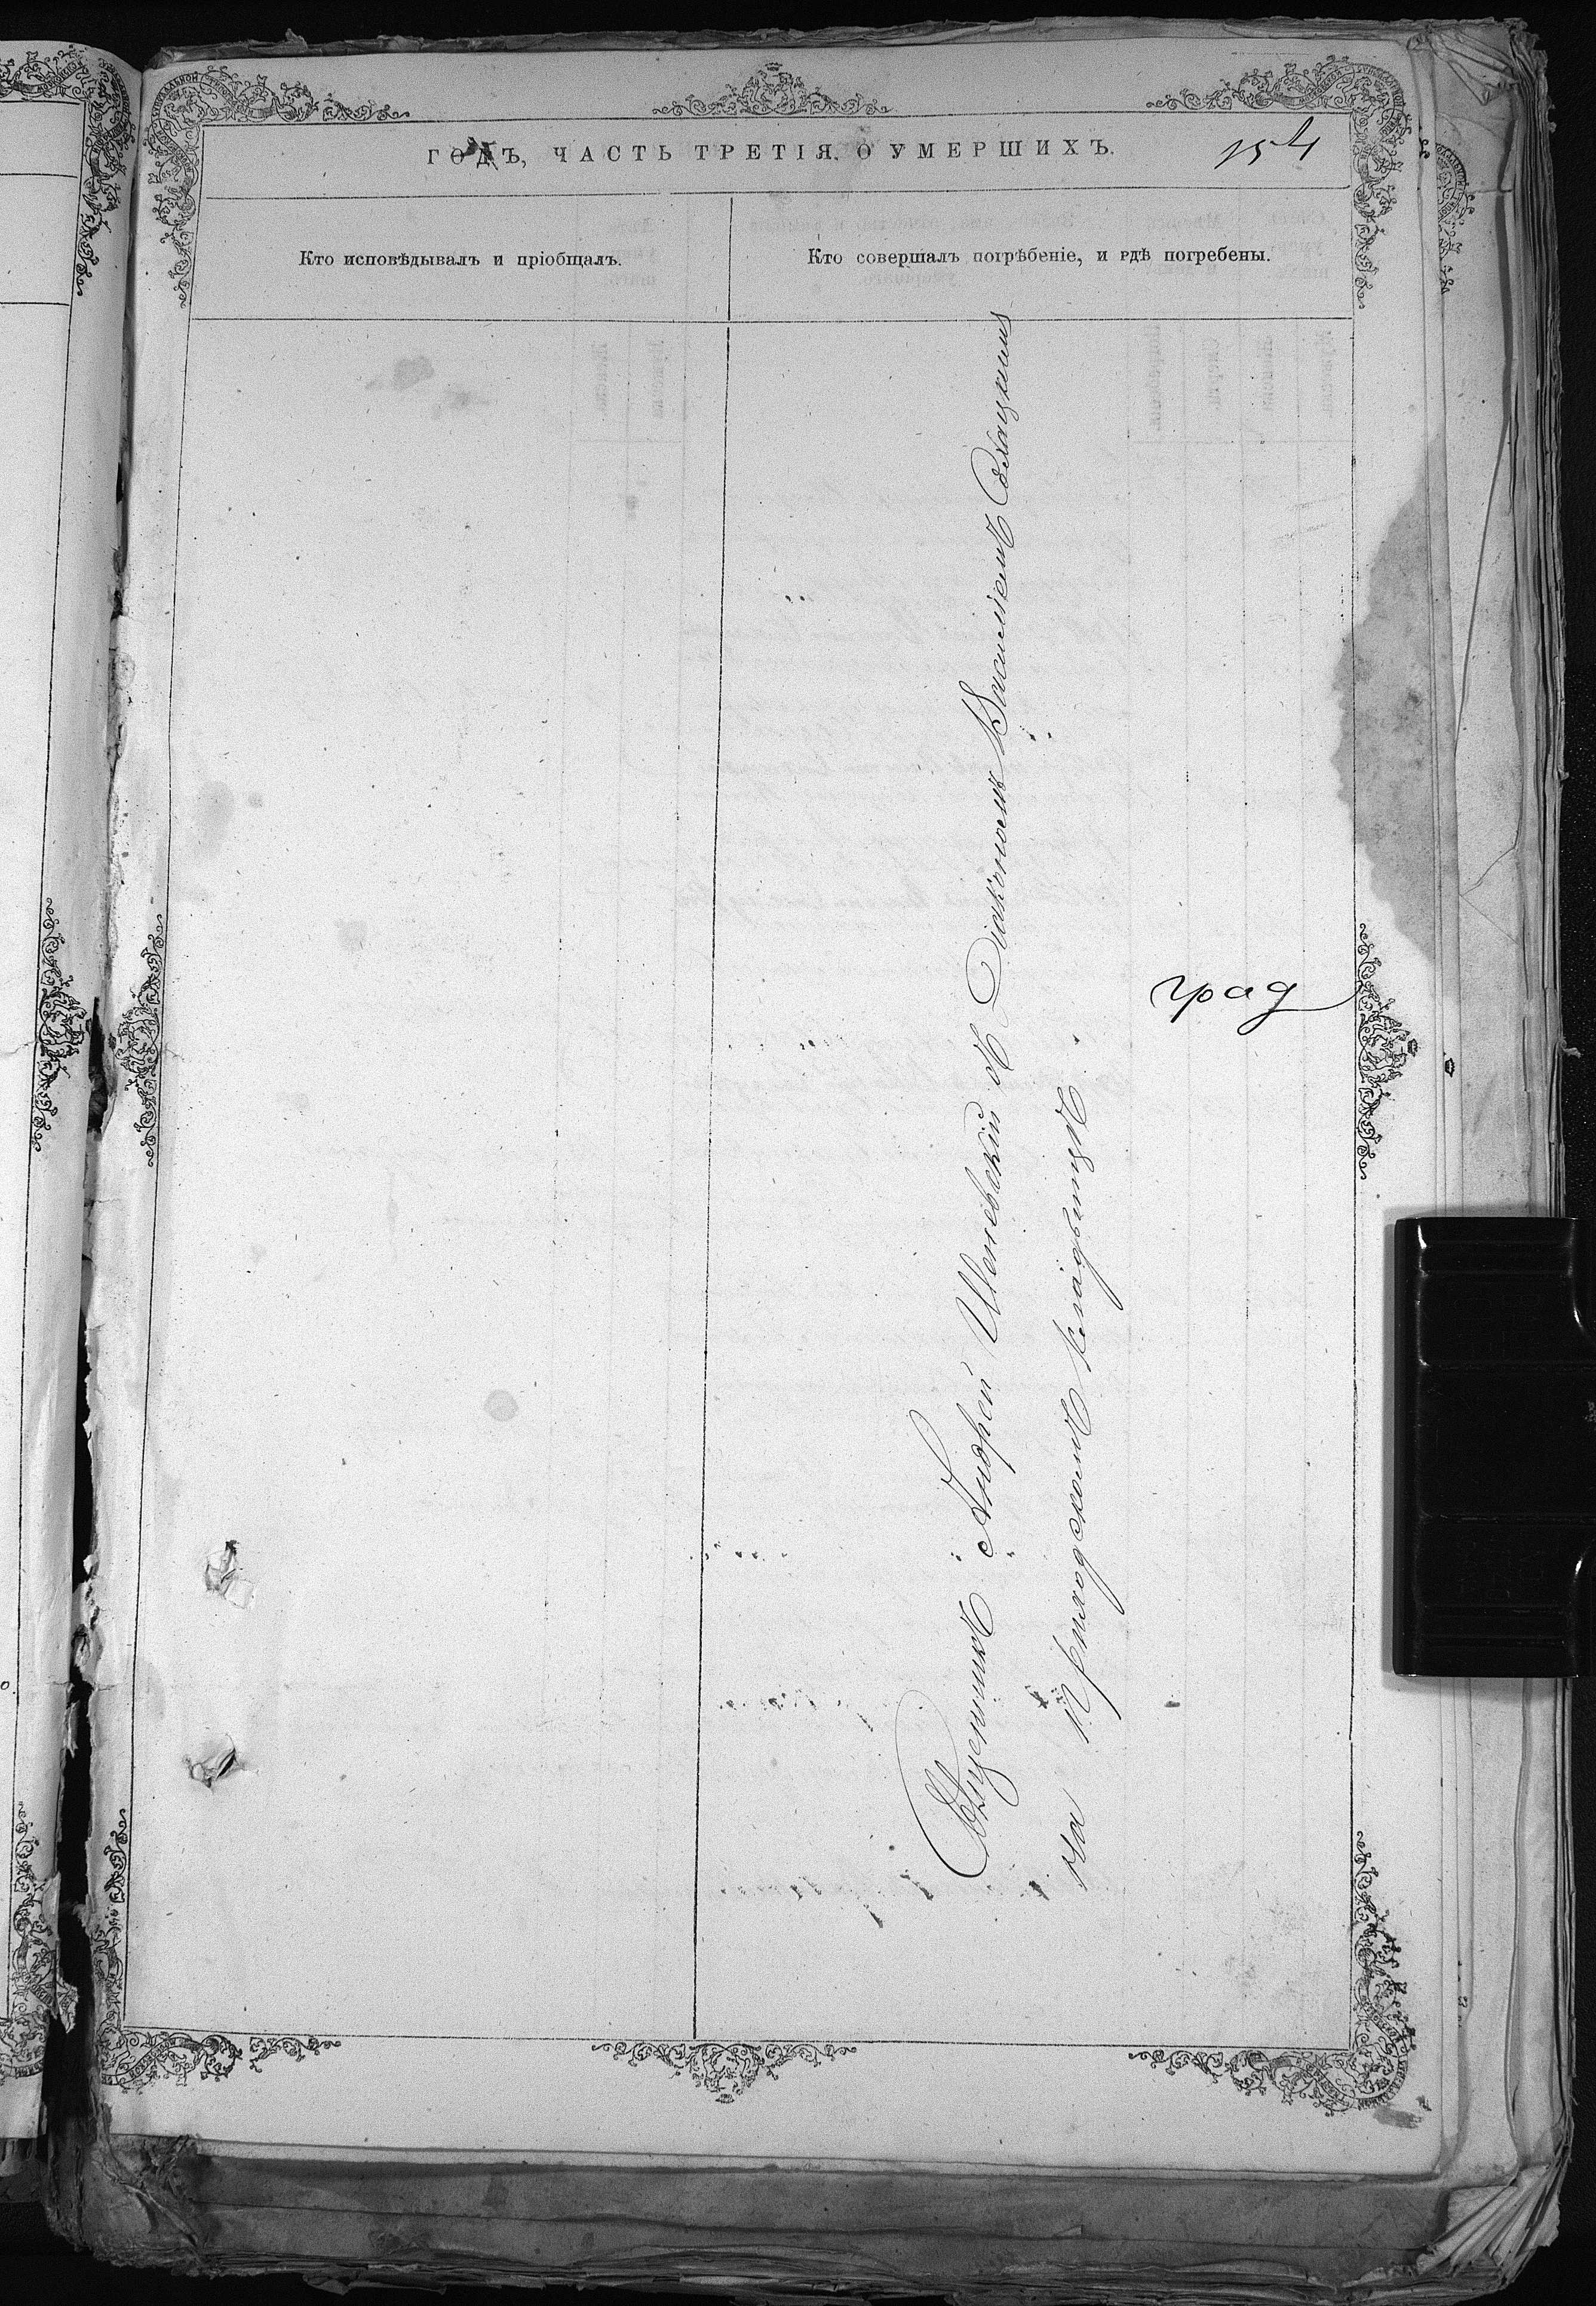 ГОДЪ, ЧАСТЬ ТРЕТІЯ, О УМЕРШИХЪ.
154
Кто исповѣдывалъ и пріобщалъ.
Кто совершалъ погрѣбеніе, и гдѣ погребены.
Священникъ Андрей Шеневскій съ Діакономъ Василіемъ
на приходскомъ кладбищѣ.
град